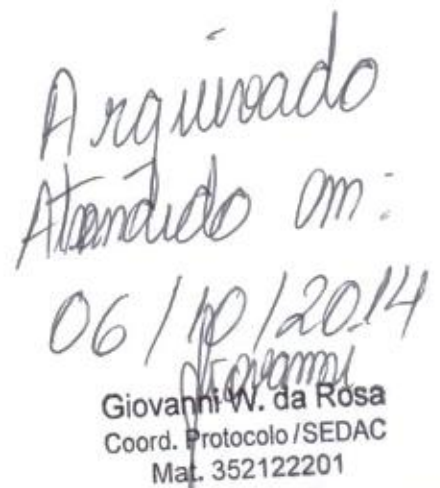 Arquivado
Atendido em:
06/10/2014
Giovanni
Giovanni W. da Rosa
Coord. Protocolo/SEDAC
Mat. 352122201